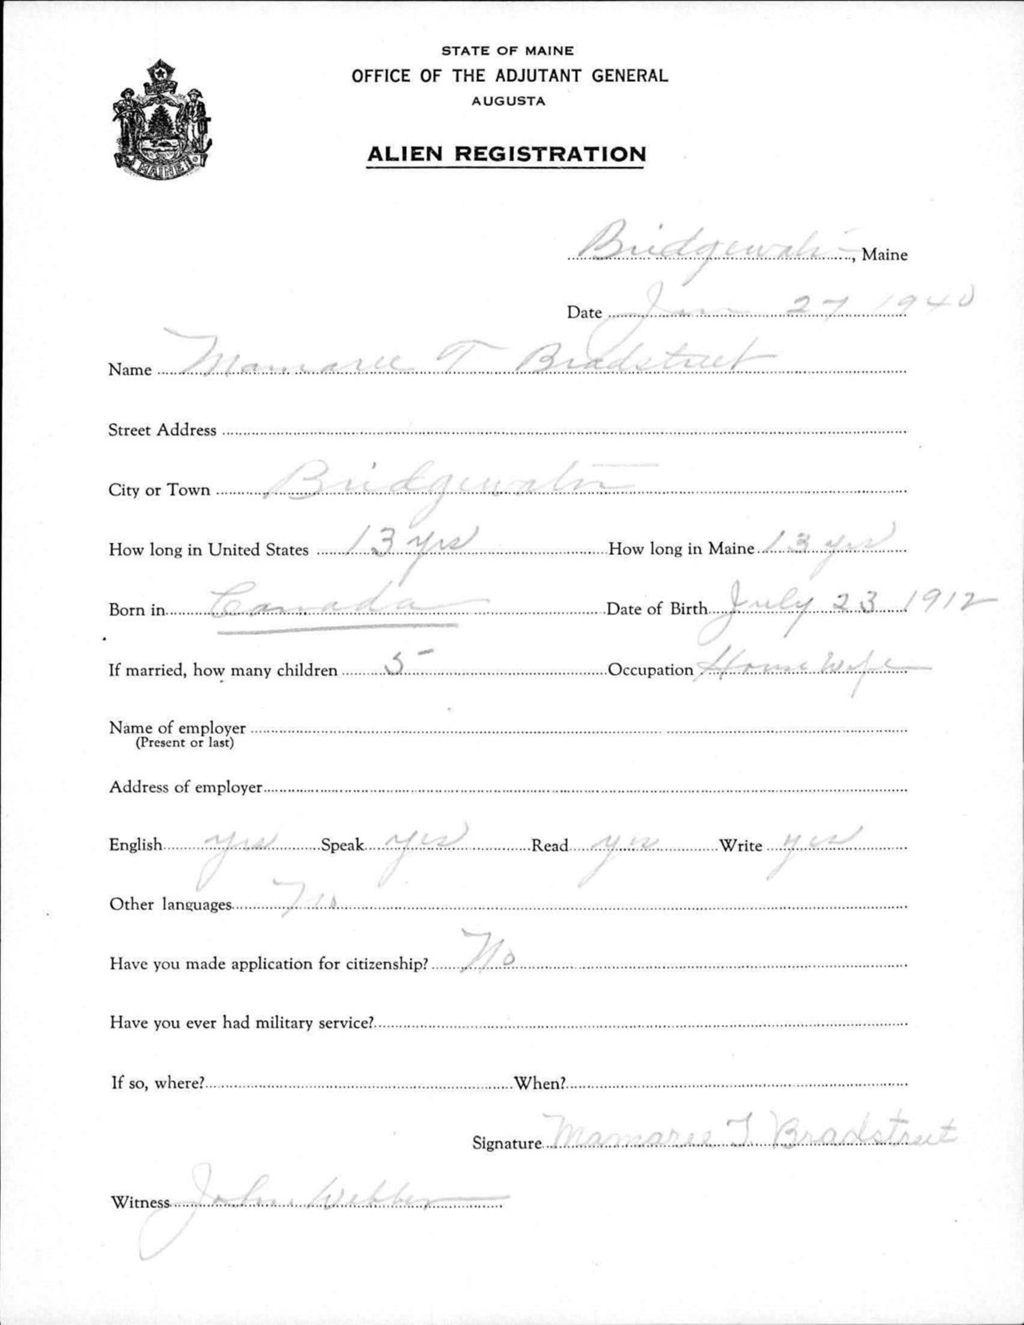 STATE OF MAINE
OFFICE OF THE ADJUTANT GENERAL
AUGUSTA
ALIEN REGISTRATION
MAINE
Bridgewater, Maine
Date Jan 27 1940
Name Mamaree T Bradstreet
Street Address
City or Town Bridgewater
How long in United States 13 yrs How long in Maine 13 yrs
Born in Canada Date of Birth July 23 1912
If married, how many children 5 Occupation House Wife
Name of employer
(Present or last)
Address of employer
English yes Speak yes Read yes Write yes
Other languages No
Have you made application for citizenship? No
Have you ever had military service?
If so, where? When?
Signature Mamaree T. Bradstreet
Witness John Webber